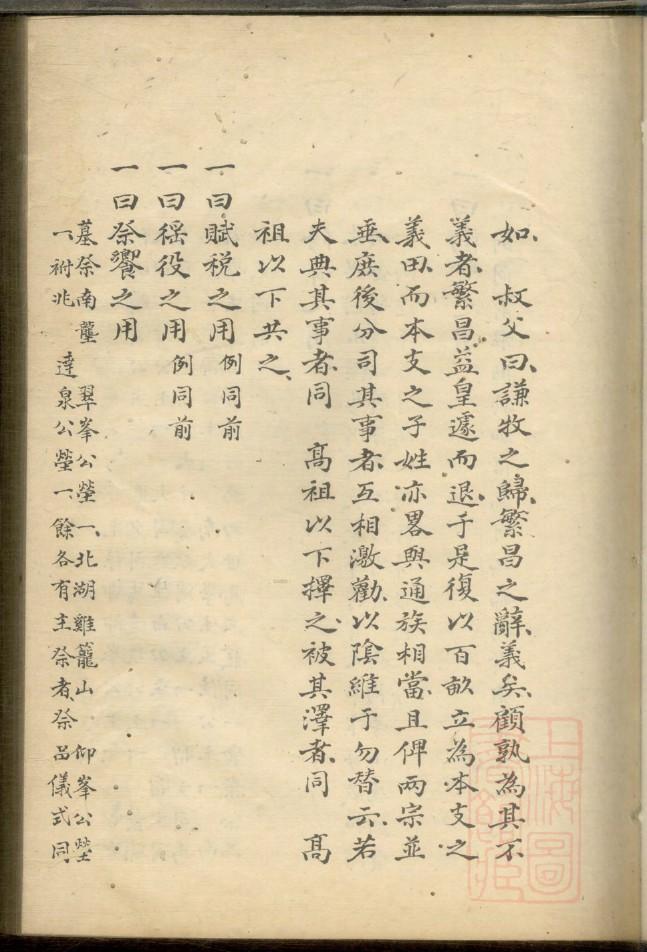 如、叔父曰、謙牧之歸、繁昌之辭、義矣、顧孰為其不
義者、繁昌益皇遽而退、于是復以百畝立為本支之
義田、而本支之子姓亦畧與通族相當、且俾兩宗並
垂庶後分司其事者、互相激勸、以陰維于勿替云、若
夫典其事者、同 高祖以下擇之、被其澤者、同 高
祖以下共之、
一曰賦稅之用例同前
一曰徭役之用例同前
一曰祭饗之用
墓祭南壟 翠峯公塋一、北湖雞籠山 仰峯公塋
一、祔兆 達泉公塋一、餘各有主祭者、祭品儀式同
上海圖
書館藏